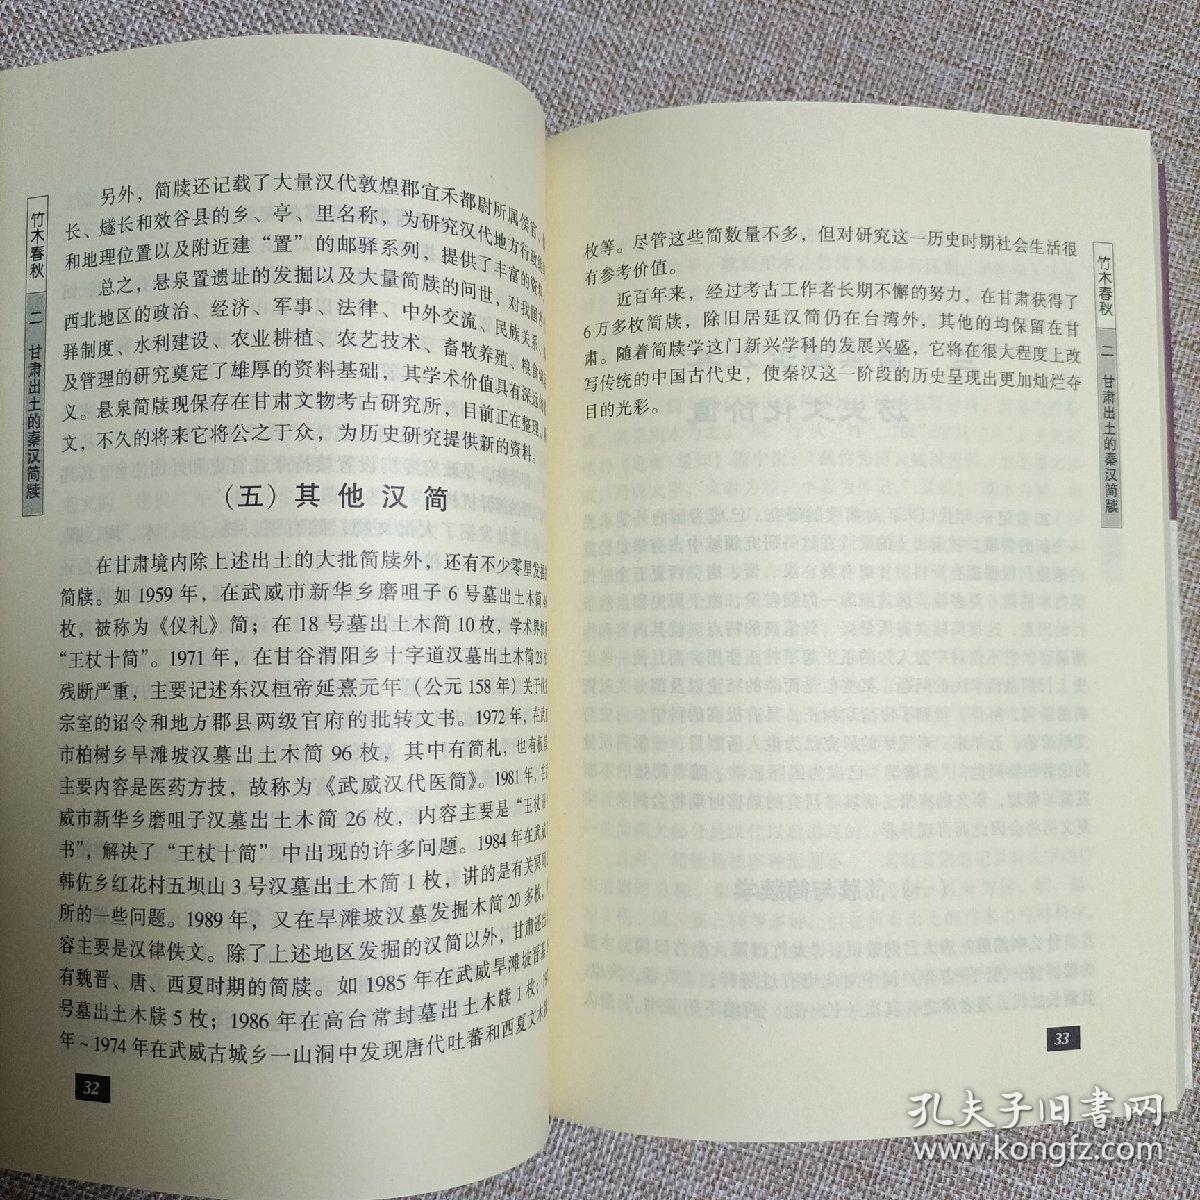 竹木春秋
二
甘肃出土的秦汉简牍
另外，简牍还记载了大量汉代敦煌郡宜禾都尉所属侯官、
长、燧长和效谷县的乡、亭、里名称，为研究汉代地方行政
和地理位置以及附近建“置”的邮驿系列，提供了丰富的资料
总之，悬泉置遗址的发掘以及大量简牍的问世，对我国
西北地区的政治、经济、军事、法律、中外交流、民族关系、
驿制度、水利建设、农业耕植、农艺技术、畜牧养殖、粮食
及管理的研究奠定了雄厚的资料基础，其学术价值具有深远
义。悬泉简牍现保存在甘肃文物考古研究所，目前正在整理
文，不久的将来它将公之于众，为历史研究提供新的资料。
（五）其他汉简
在甘肃境内除上述出土的大批简牍外，还有不少零星发掘
简牍。如 1959 年，在武威市新华乡磨咀子 6 号墓出土木简
枚，被称为《仪礼》简；在 18 号墓出土木简 10 枚，学术界
“王杖十简”。1971 年，在甘谷渭阳乡十字道汉墓出土木简 23
残断严重，主要记述东汉桓帝延熹元年（公元 158 年）关于
宗室的诏令和地方郡县两级官府的批转文书。1972 年，在武
市柏树乡旱滩坡汉墓出土木简 96 枚，其中有简札，也有
主要内容是医药方技，故称为《武威汉代医简》。1981 年，在
威市新华乡磨咀子汉墓出土木简 26 枚，内容主要是“王杖
书”，解决了“王杖十简”中出现的许多问题。1984 年在武威
韩佐乡红花村五坝山 3 号汉墓出土木简 1 枚，讲的是有关冥
所的一些问题。1989 年，又在旱滩坡汉墓发掘木简 20 多枚，
容主要是汉律佚文。除了上述地区发掘的汉简以外，甘肃还出
有魏晋、唐、西夏时期的简牍。如 1985 年在武威旱滩坡晋墓
号墓出土木牍 5 枚；1986 年在高台常封墓出土木牍 1 枚；
年～1974 年在武威古城乡一山洞中发现唐代吐蕃和西夏文木
32
枚等。尽管这些简数量不多，但对研究这一历史时期社会生活很
有参考价值。
近百年来，经过考古工作者长期不懈的努力，在甘肃获得了
6 万多枚简牍，除旧居延汉简仍在台湾外，其他的均保留在甘
肃。随着简牍学这门新兴学科的发展兴盛，它将在很大程度上改
写传统的中国古代史，使秦汉这一阶段的历史呈现出更加灿烂夺
目的光彩。
竹木春秋
二
甘肃出土的秦汉简牍
33
孔夫子旧书网
www.kongfz.com